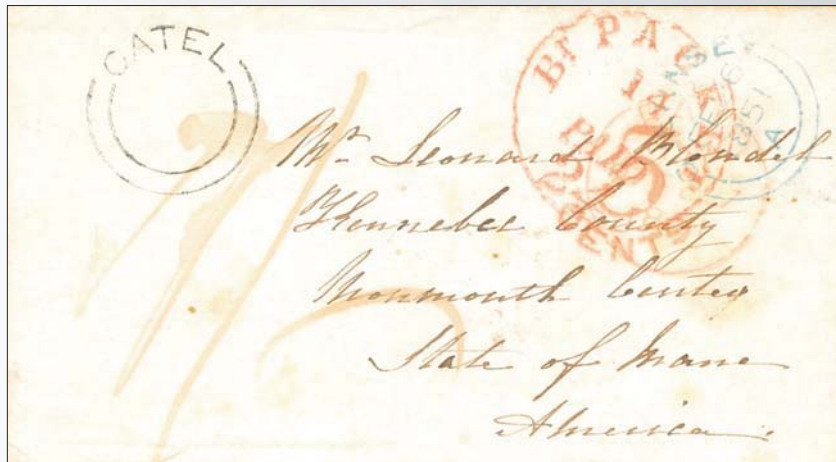 CATEL
Br PACK
PAID
3
CENTS
Mr Leonard Blondel
Kennebec County
Monmouth Center
State of Mane
America